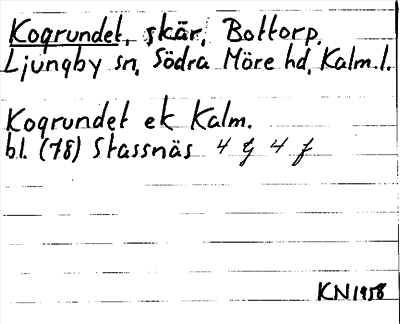 Kogrundet, skär, Bottorp,
Ljungby sn, Södra Möre hd, Kalm.l.
Kogrundet ek Kalm.
bl. (78) Stassnäs 4 g 4 f
KN1958